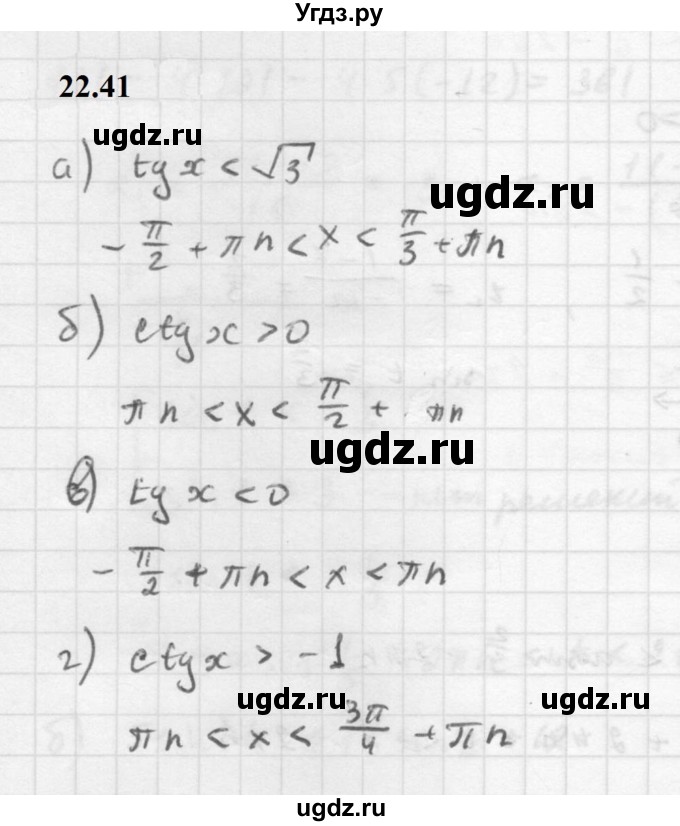 Угдз.ру
22.41
ugdz.ru
а) tg x < √3
ugdz.ru
- π/2 + πn < x < π/3 + πn
б) ctg x > 0
ugdz.ru
πn < x < π/2 + πn
ugdz.ru
в) tg x < 0
- π/2 + πn < x < πn
г) ctg x > -1
ugdz.ru
ugdz.ru
πn < x < 3π/4 + πn
ugdz.ru